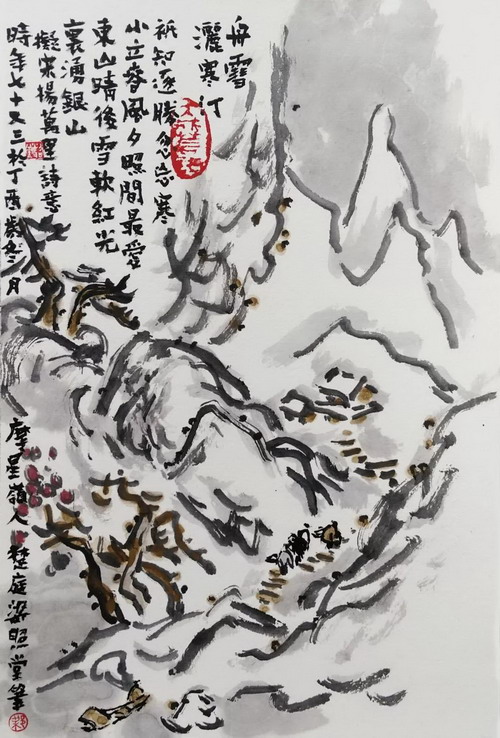 舟雪
灑寒汀
祇知逐勝忽忘寒
小立春風夕照間最愛
東山晴後雪軟紅光
裏湧銀山
擬宋楊萬里詩意
時年七十又三於丁酉歲冬月
摩星嶺人楚庭梁照堂筆